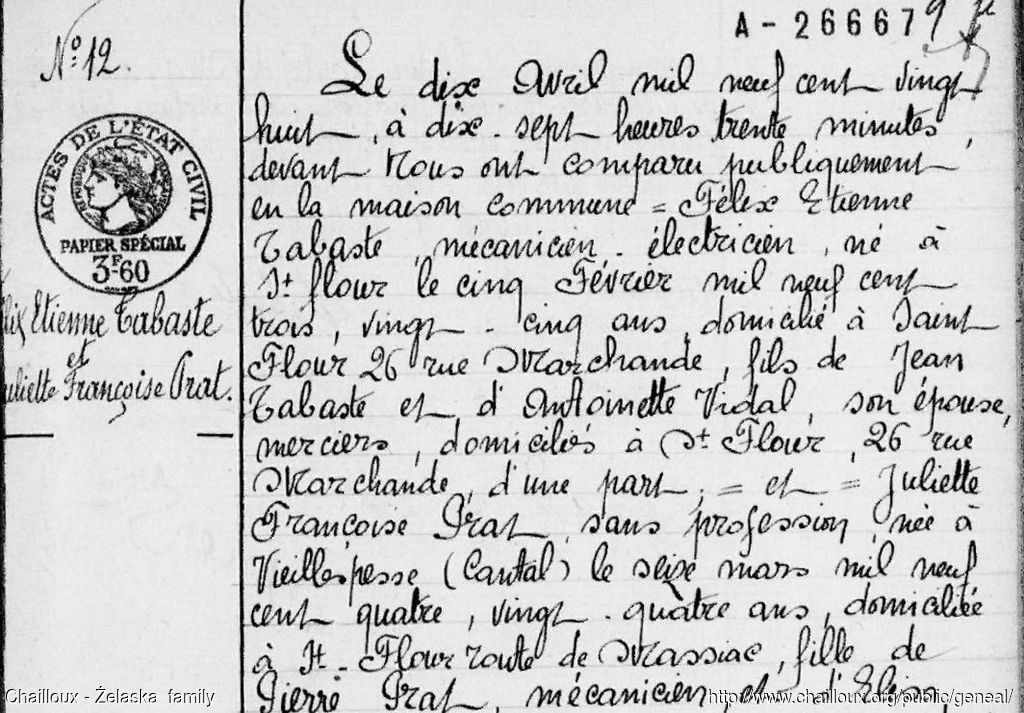 A - 266679
N° 12.
ACTES DE L'ÉTAT CIVIL
PAPIER SPÉCIAL
3F-60
lix Etienne Tabaste
et
uliette Françoise Prat.
Le dix Avril mil neuf cent vingt
huit, à dix-sept heures trente minutes,
devant Nous ont comparu publiquement
en la maison commune = Félix Etienne
Tabaste, mécanicien-électricien, né à
St flour le cinq Février mil neuf cent
trois, vingt-cinq ans, domicilié à Saint
Flour 26 rue Marchande, fils de Jean
Tabaste et d'Antoinette Vidal, son épouse,
merciers, domiciliés à St Flour, 26 rue
Marchande, d'une part, = et = Juliette
Françoise Prat, sans profession, née à
Vieillespesse (Cantal) le seize mars mil neuf
cent quatre, vingt-quatre ans, domiciliée
à St-Flour route de Massiac, fille de
Pierre Prat, mécanicien, et d'Elisa,
Chailloux - Želaska family
http://www.chailloux.org/public/geneal/